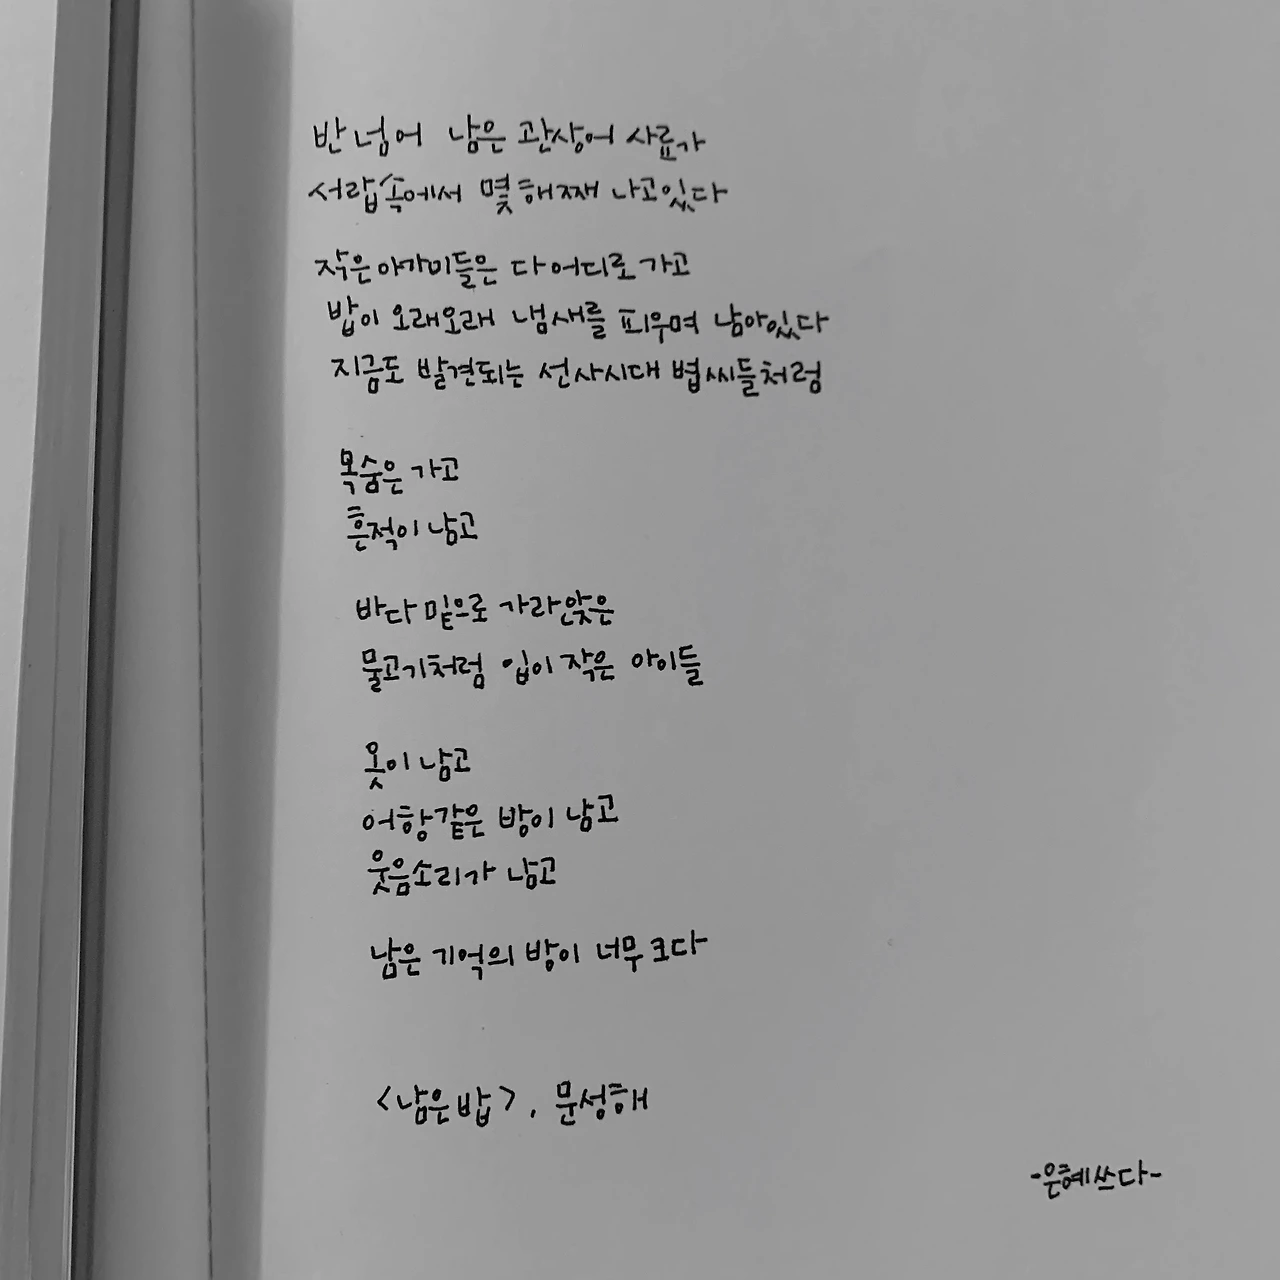 반 넘어 남은 관상어 사료가
서랍속에서 몇해째 나고있다
작은아가미들은 다 어디로 가고
밥이 오래오래 냄새를 피우며 남아있다
지금도 발견되는 선사시대 볍씨들처럼
목숨은 가고
흔적이 남고
바다 밑으로 가라앉은
물고기처럼 입이 작은 아이들
옷이 남고
어항같은 방이 남고
웃음소리가 남고
남은 기억의 방이 너무 크다
<남은 밥>, 문성해
-은혜쓰다-